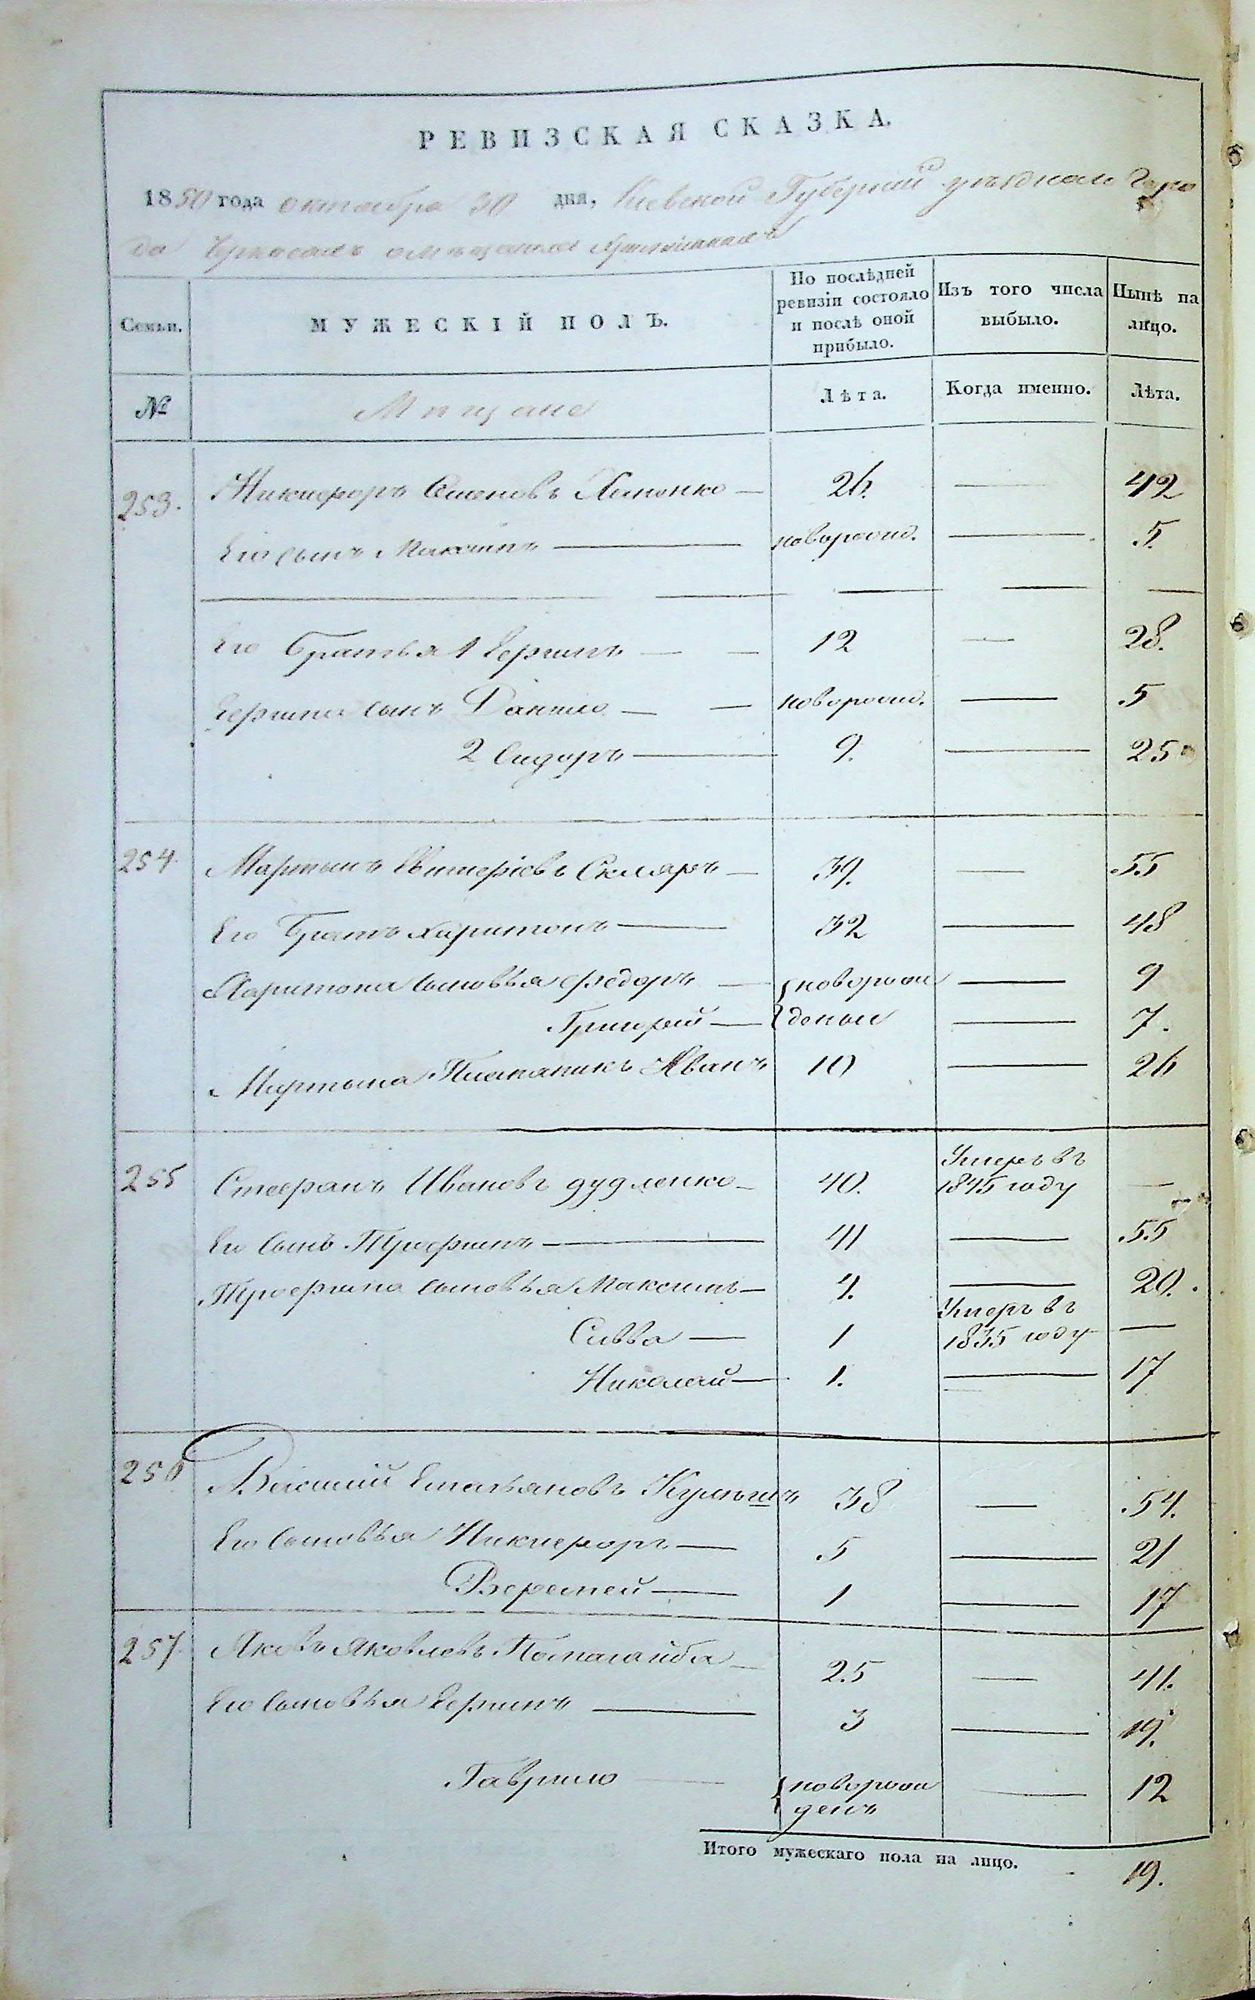 РЕВИЗСКАЯ СКАЗКА.
1850 года октября 30 дня, Киевской Губернии уезднаго Горо
да Черкасъ о мещанахъ христіанахъ
Семьи.
МУЖЕСКІЙ ПОЛЪ.
По послѣдней ревизіи состояло и послѣ оной прибыло.
Изъ того числа выбыло.
Нынѣ на лицо.
№
Мещане
Лѣта.
Когда именно.
Лѣта.
253. Никифоръ Семеновъ — 26. — 42
Его сынъ Максимъ — новорожд. — 5.
Его Братья 1 Ефимъ — 12 — 28.
Ефима сынъ Данило — новорожд. — 5
2 Сидоръ — 9. — 25
254 Мартынъ Скляръ — 39. — 55
Его Братъ Харитонъ — 32 — 48
Харитона сыновья Федоръ — { новорож — 9
Григорій — { деные — 7.
Мартына Племяникъ Иванъ 10 — 26
Умеръ въ
255 Стефанъ Ивановъ Дудленко — 40. 1845 году —
Его сынъ Трофимъ — 41 — 55
Трофима сыновья Максимъ — 4. — 20.
Умеръ въ
Савва — 1 1835 году —
Николай — 1. — 17
256 Василий Емельяновъ 38 — 54.
Его сыновья Никифоръ — 5 — 21
Веремей — 1 — 17
257 Яковъ Яковлевъ Помагайба — 25 — 41.
Его сыновья Ефимъ — 3 — 19.
Гаврило — { новорож — 12
денъ
Итого мужескаго пола на лицо. 19.